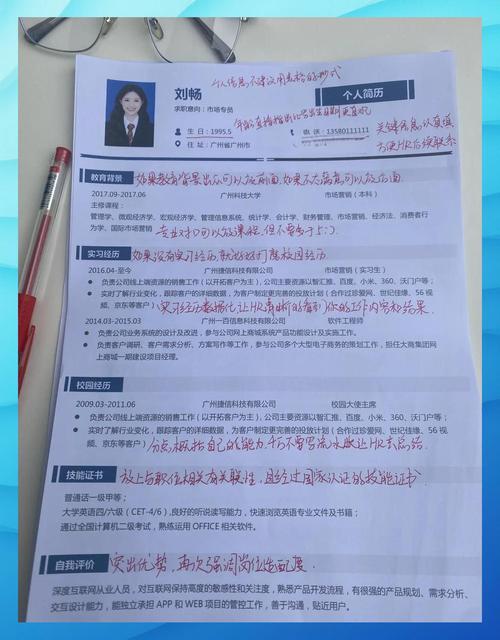 个人信息不建议用表格的形式
刘畅
个人简历
求职意向：市场专员
年龄直接指出比写出生日期更直观
生 日：1995.5
电 话：13580111111
关键信息认真填
住 址：广州省广州市
方便HR后续联系
教育背景 如果教育背景出众可以放前面，如果不太满意可以放后面
2017.09-2017.06 广州科技大学 市场营销（本科）
主修课程：
管理学、微观经济学、宏观经济学、管理信息系统、统计学、会计学、财务管理、市场营销、经济法、消费者行
为学、国际市场营销 专业对口可以放课程,但不要多于5门。
实习经历 如果没有实习经历,就好好打磨校园经历
2016.04-至今 广州捷信科技有限公司 市场营销（实习生）
● 负责公司线上端资源的销售工作（以开拓客户为主），公司主要资源以智汇推、百度、小米、360、沃门户等；
● 实时了解行业变化，跟踪客户的详细数据，为客户制定更完善的投放计划（合作过珍爱网、世纪佳缘、56 视
频、京东等客户） 实习经历数据化,让HR清晰的看到你的工作内容和结果.
2014.03-2015.03 广州一百信息科技有限公司 软件工程师
● 负责公司业务系统的设计及改进，参与公司网上商城系统产品功能设计及实施工作。
● 负责客户调研、客户需求分析、方案写作等工作，参与公司多个大型电子商务的策划工作，担任大商集团网
上商城一期建设项目经理。
校园经历
2009.03-2011.06 广州捷信科技有限公司 校园大使主席
● 负责公司线上端资源的销售工作（以开拓客户为主），公司主要资源以智汇推、百度、小米、360、沃门户等；
● 实时了解行业变化，跟踪客户的详细数据，为客户制定更完善的投放计划（合作过珍爱网、世纪佳缘、56 视
频、京东等客户） 分点概括自己的能力,千万不要写流水账让HR去总结.
技能证书 放上与职位相关有关联性,且经过国家认证的技能证书.
普通话一级甲等；
大学英语四/六级（CET-4/6），良好的听说读写能力，快速浏览英语专业文件及书籍；
通过全国计算机二级考试，熟练运用 OFFICE 相关软件。
自我评价 突出优势,再次强调岗位适配度.
深度互联网从业人员，对互联网保持高度的敏感性和关注度，熟悉产品开发流程，有很强的产品规划、需求分析、
交互设计能力，能独立承担 APP 和 WEB 项目的管控工作，善于沟通，贴近用户。